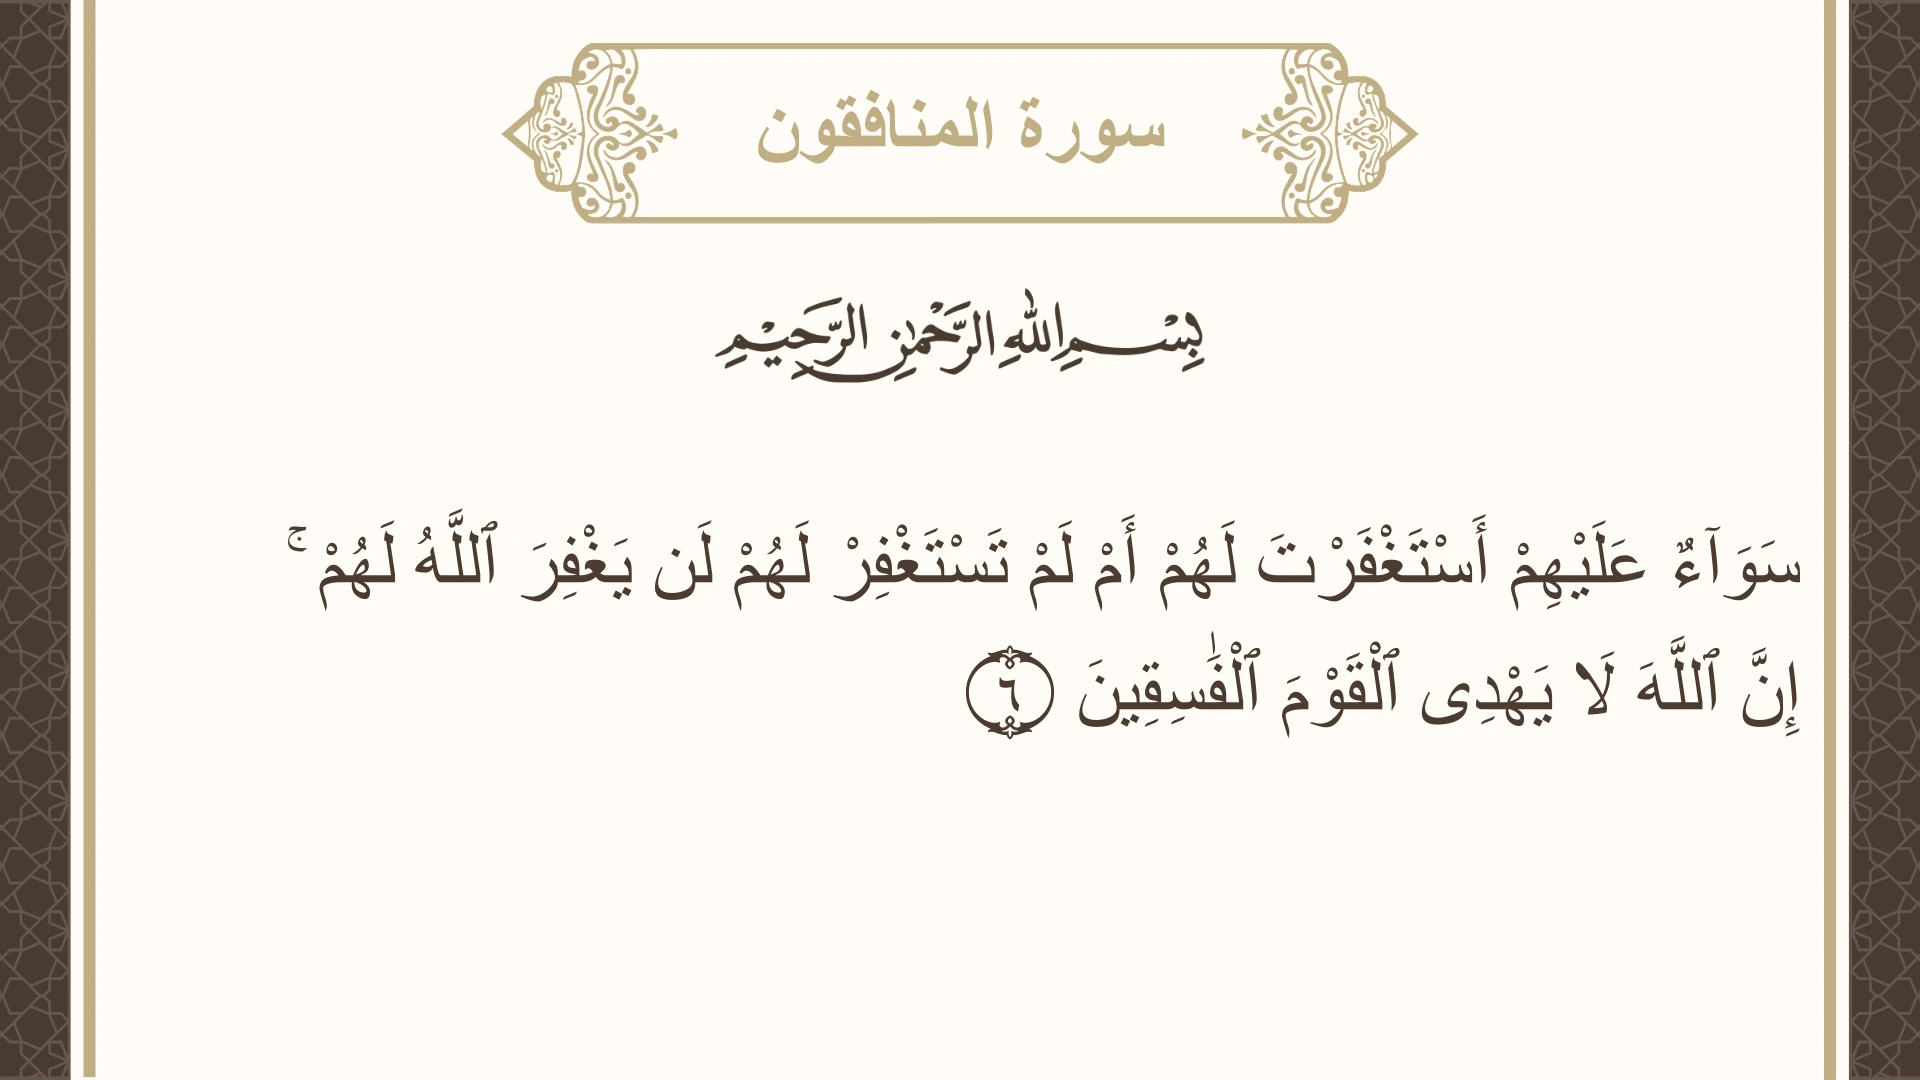 سورة المنافقون
بِسْمِ اللهِ الرَّحْمٰنِ الرَّحِيْمِ
سَوَآءٌ عَلَيْهِمْ أَسْتَغْفَرْتَ لَهُمْ أَمْ لَمْ تَسْتَغْفِرْ لَهُمْ لَن يَغْفِرَ ٱللَّهُ لَهُمْ ۚ
إِنَّ ٱللَّهَ لَا يَهْدِى ٱلْقَوْمَ ٱلْفَٰسِقِينَ ٦